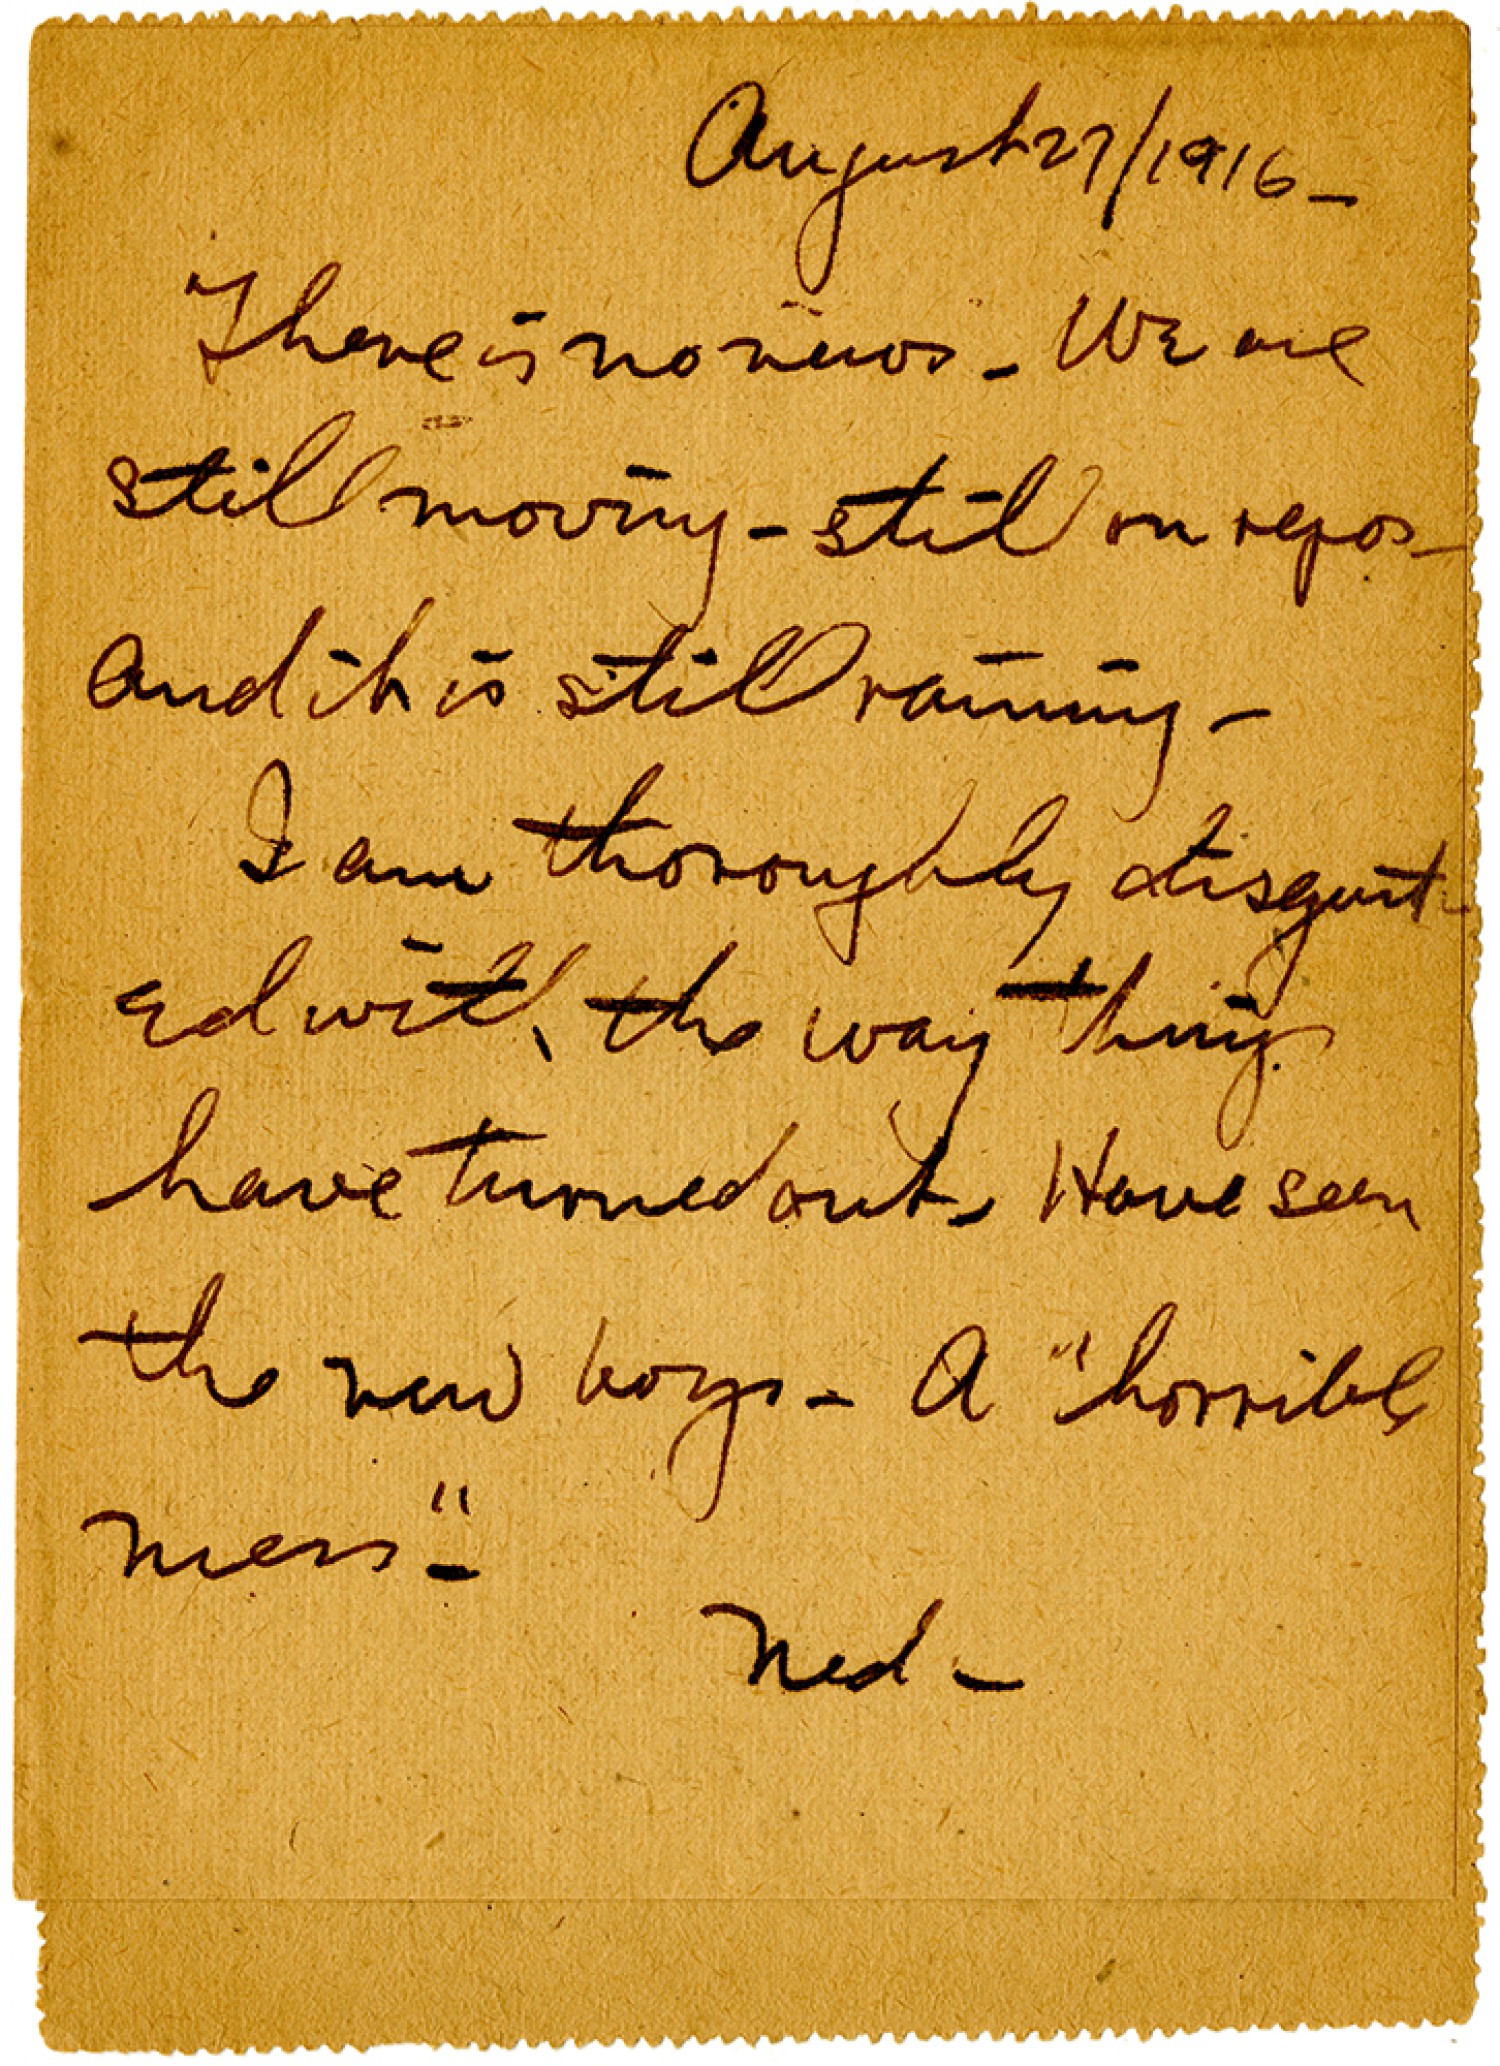 August 27/1916 –
There is no news – We are
still moving – still on repos –
and it is still raining –
I am thoroughly disgust-
ed with the way things
have turned out. Have seen
the new boys – A "horrible
mess" –
Ned –